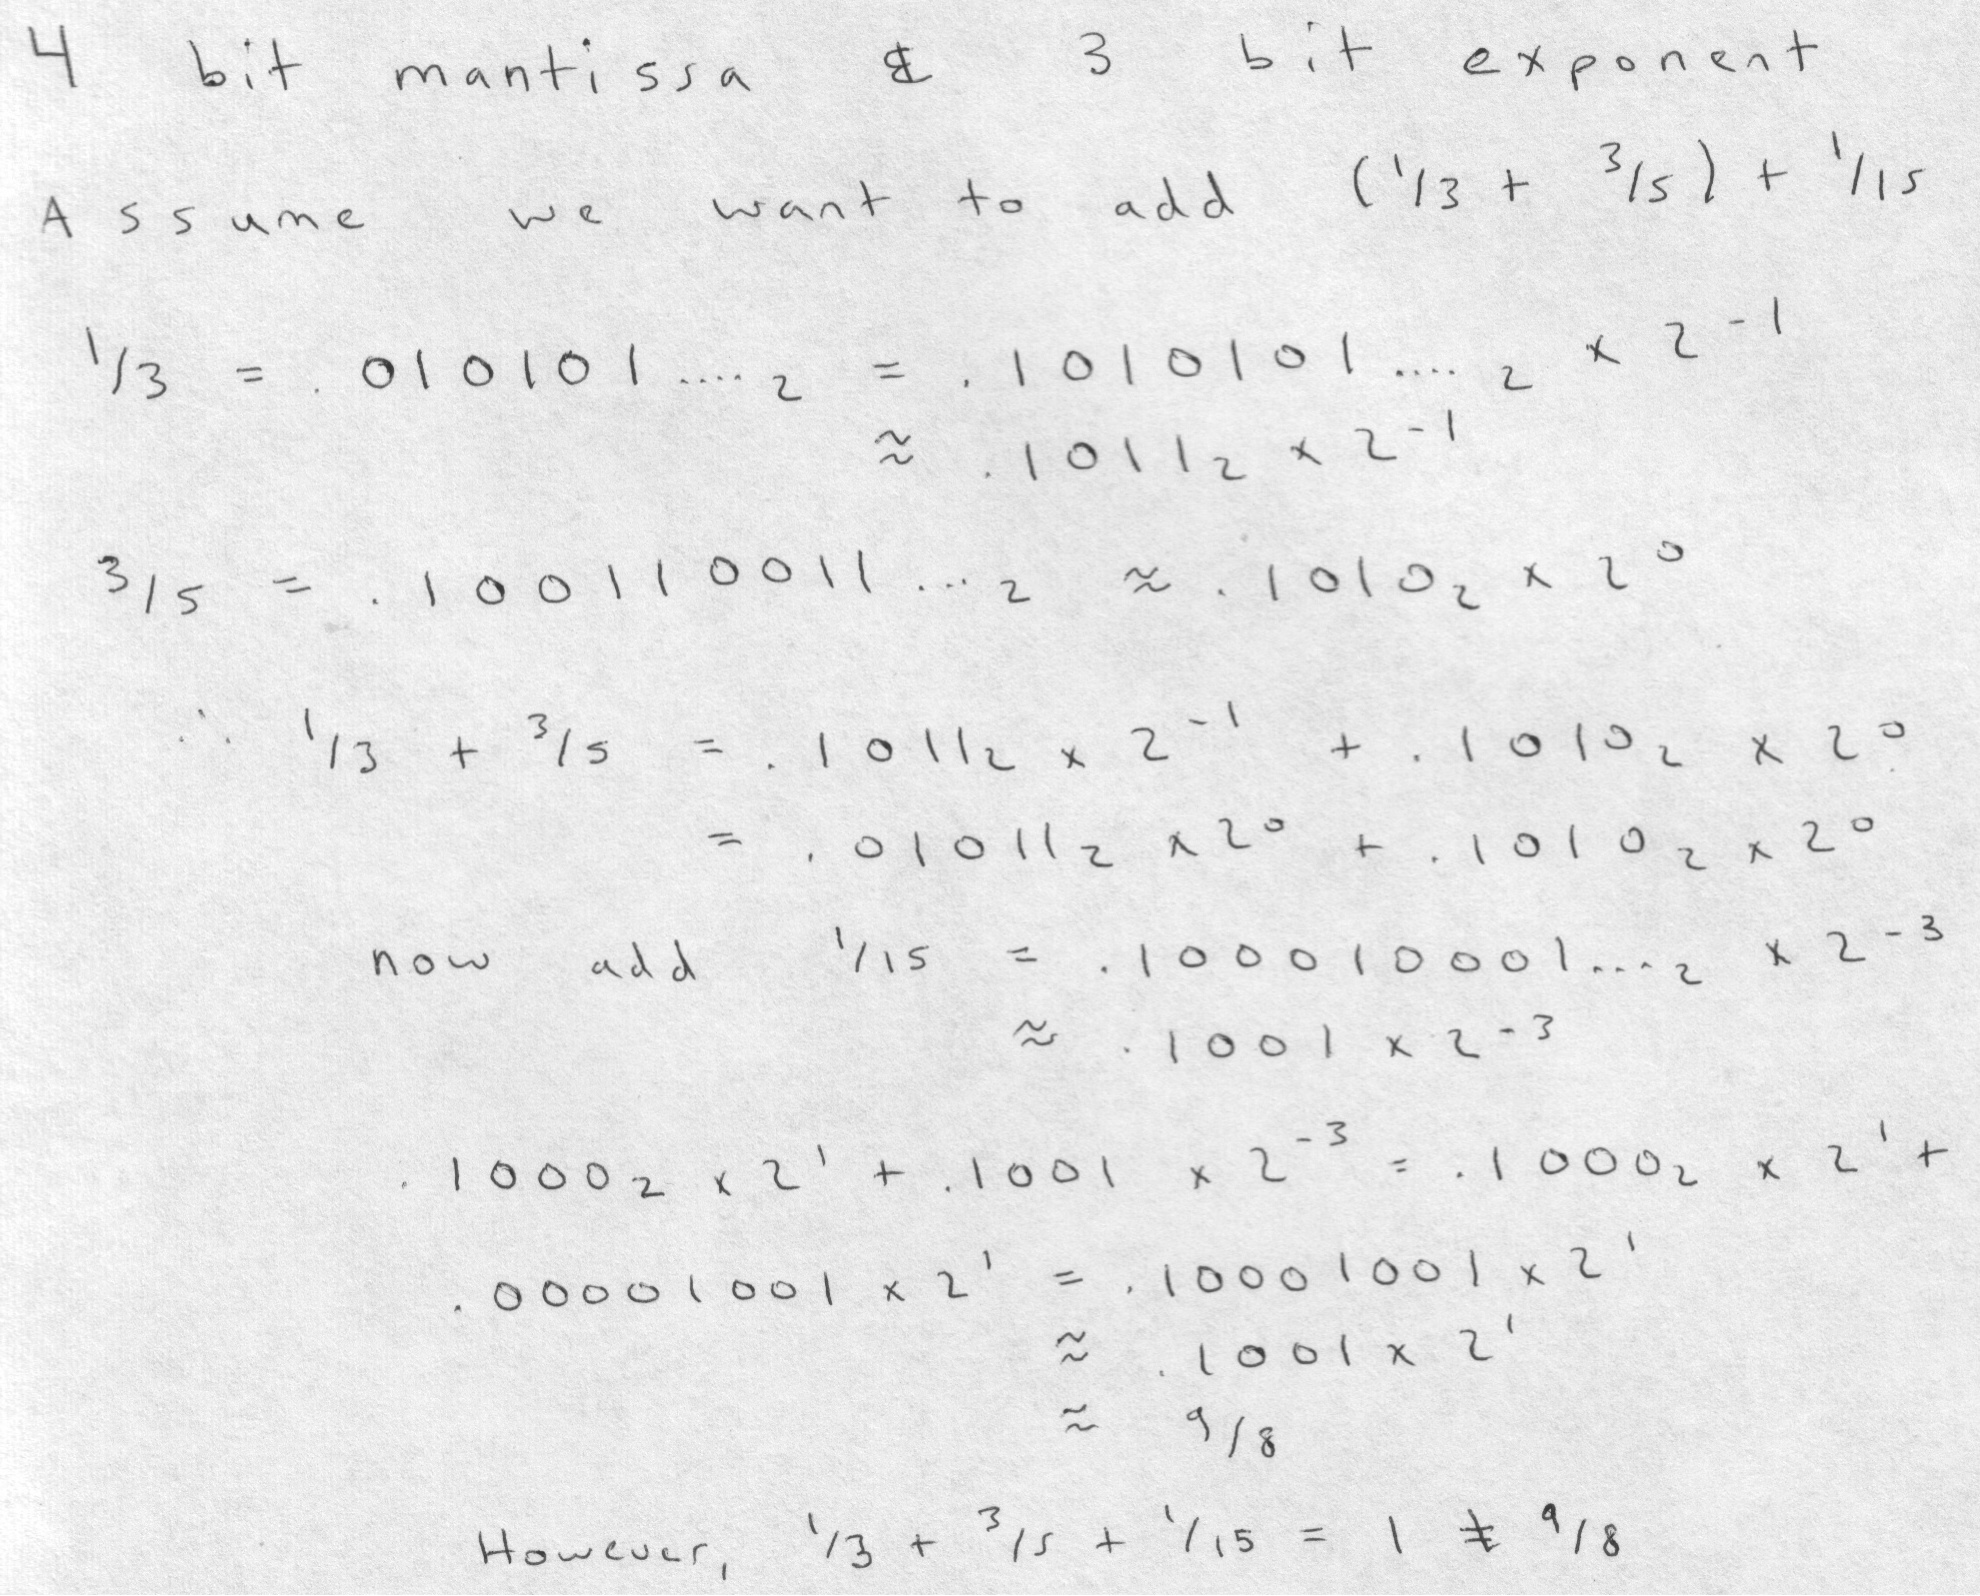 4 bit mantissa & 3 bit exponent
Assume we want to add (1/3 + 3/5) + 1/15
1/3 = .010101....₂ = .1010101....₂ × 2⁻¹
≈ .1011₂ × 2⁻¹
3/5 = .100110011...₂ ≈ .1010₂ × 2⁰
∴ 1/3 + 3/5 = .1011₂ × 2⁻¹ + .1010₂ × 2⁰
= .01011₂ × 2⁰ + .1010₂ × 2⁰
now add 1/15 = .100010001....₂ × 2⁻³
≈ .1001 × 2⁻³
.1000₂ × 2¹ + .1001 × 2⁻³ = .1000₂ × 2¹ +
.00001001 × 2¹ = .10001001 × 2¹
≈ .1001 × 2¹
≈ 9/8
However, 1/3 + 3/5 + 1/15 = 1 ≠ 9/8